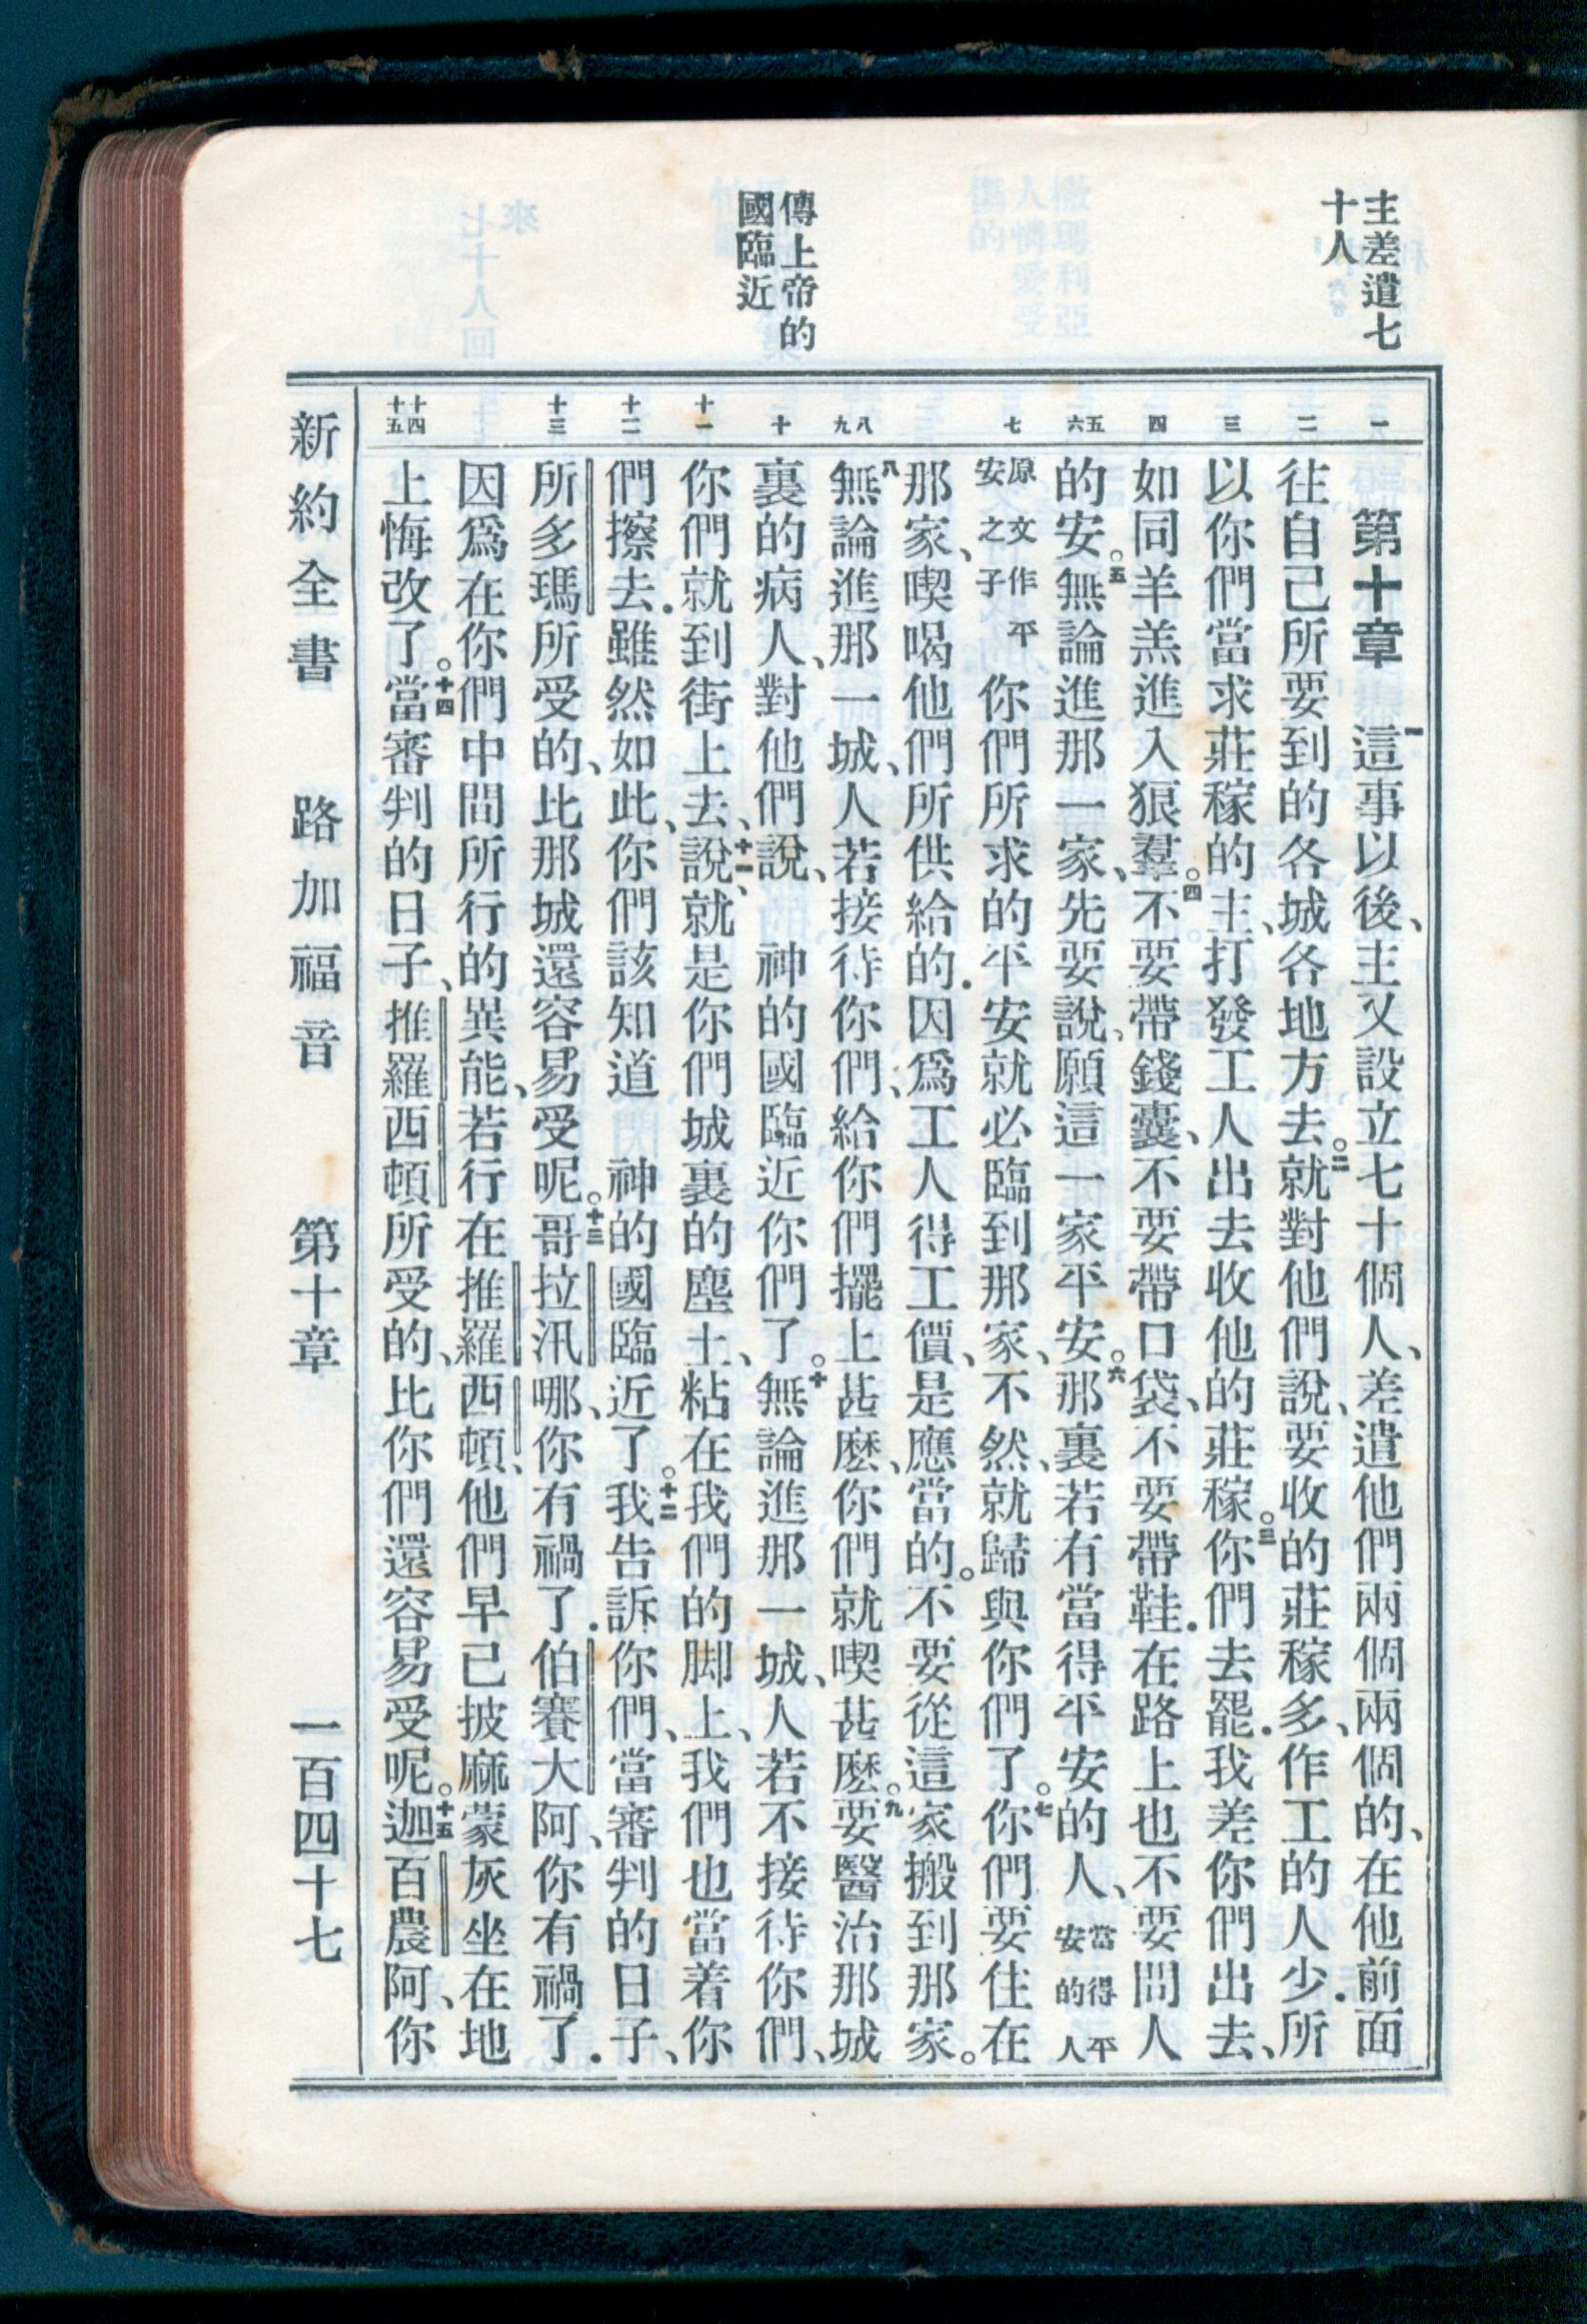 主差遣七
十人
傳上帝的
國臨近
一
二
三
四
五六
七
八九
十
十一
十二
十三
十四十五
第十章 一這事以後、主又設立七十個人、差遣他們兩個兩個的、在他前面
往自己所要到的各城各地方去。二就對他們說、要收的莊稼多、作工的人少．所
以你們當求莊稼的主、打發工人出去收他的莊稼。三你們去罷．我差你們出去、
如同羊羔進入狼羣。四不要帶錢囊、不要帶口袋、不要帶鞋．在路上也不要問人
的安。五無論進那一家、先要說、願這一家平安。六那裏若有當得平安的人、當得平安的人
原文作平安之子 你們所求的平安就必臨到那家、不然、就歸與你們了。七你們要住在
那家、喫喝他們所供給的．因爲工人得工價、是應當的。不要從這家搬到那家。
八無論進那一城、人若接待你們、給你們擺上甚麽、你們就喫甚麽。九要醫治那城
裏的病人、對他們說、 神的國臨近你們了。十無論進那一城、人若不接待你們、
你們就到街上去、說、十一就是你們城裏的塵土、粘在我們的脚上、我們也當着你
們擦去．雖然如此、你們該知道 神的國臨近了。十二我告訴你們、當審判的日子、
所多瑪所受的、比那城還容易受呢。十三哥拉汛哪、你有禍了．伯賽大阿、你有禍了．
因爲在你們中間所行的異能、若行在推羅西頓、他們早已披麻蒙灰坐在地
上悔改了。十四當審判的日子、推羅西頓所受的、比你們還容易受呢。十五迦百農阿、你
新約全書 路加福音 第十章 一百四十七